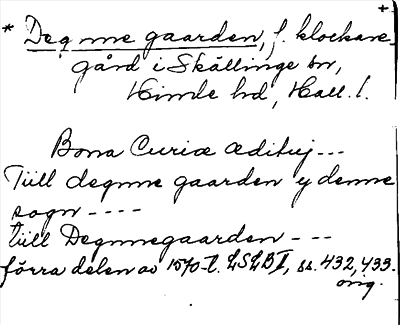 * Degnne gaarden, f. klockare-
gård i Skällinge sn,
Himle hd, Hall. l.
Bona Curiæ ædituj ---
Tiill degnne gaarden y denne
sogn ----
Tiill Degnnegaarden ---
förra delen av 1570-t. LSLB I, ss. 432, 433.
orig.